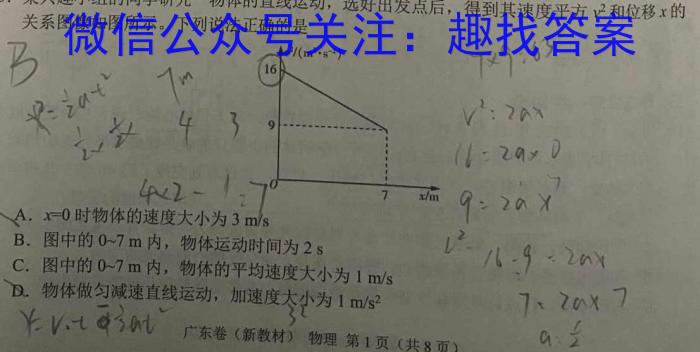 某兴趣小组的同学研究一物体的直线运动，选好出发点后，得到其速度平方 v² 和位移 x 的
关系图像如图所示。下列说法正确的是
微信公众号关注：趣找答案
B
v²/(m²·s⁻²)
16
9
O
7
x/m
7m
4 3
4×2-1=7
v²=2ax
16=2a×0
9=2a×7
16-9=2ax
7=2a×7
A．x=0 时物体的速度大小为 3 m/s
B．图中的 0~7 m 内，物体运动时间为 2 s
C．图中的 0~7 m 内，物体的平均速度大小为 1 m/s
D．物体做匀减速直线运动，加速度大小为 1 m/s²
广东卷（新教材） 物理 第 1 页（共 8 页）